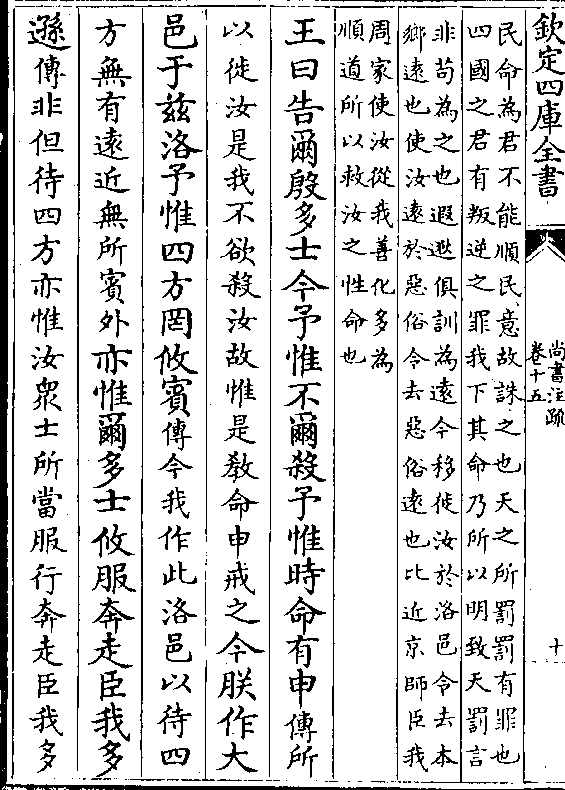 欽定四庫全書
尚書注疏
卷十五
十
民命為君不能順民意故誅之也天之所罰罰有罪也
四國之君有叛逆之罪我下其命乃所以明致天罰言
非苟為之也遐逖俱訓為遠今移徙汝於洛邑令去本
鄉遠也使汝遠於惡俗令去惡俗遠也比近京師臣我
周家使汝從我善化多為
順道所以救汝之性命也
王曰告爾殷多士今予惟不爾殺予惟時命有申傳所
以徙汝是我不欲殺汝故惟是教命申戒之今朕作大
邑于兹洛予惟四方罔攸賓傳今我作此洛邑以待四
方無有遠近無所賓外亦惟爾多士攸服奔走臣我多
遜傳非但待四方亦惟汝衆士所當服行奔走臣我多